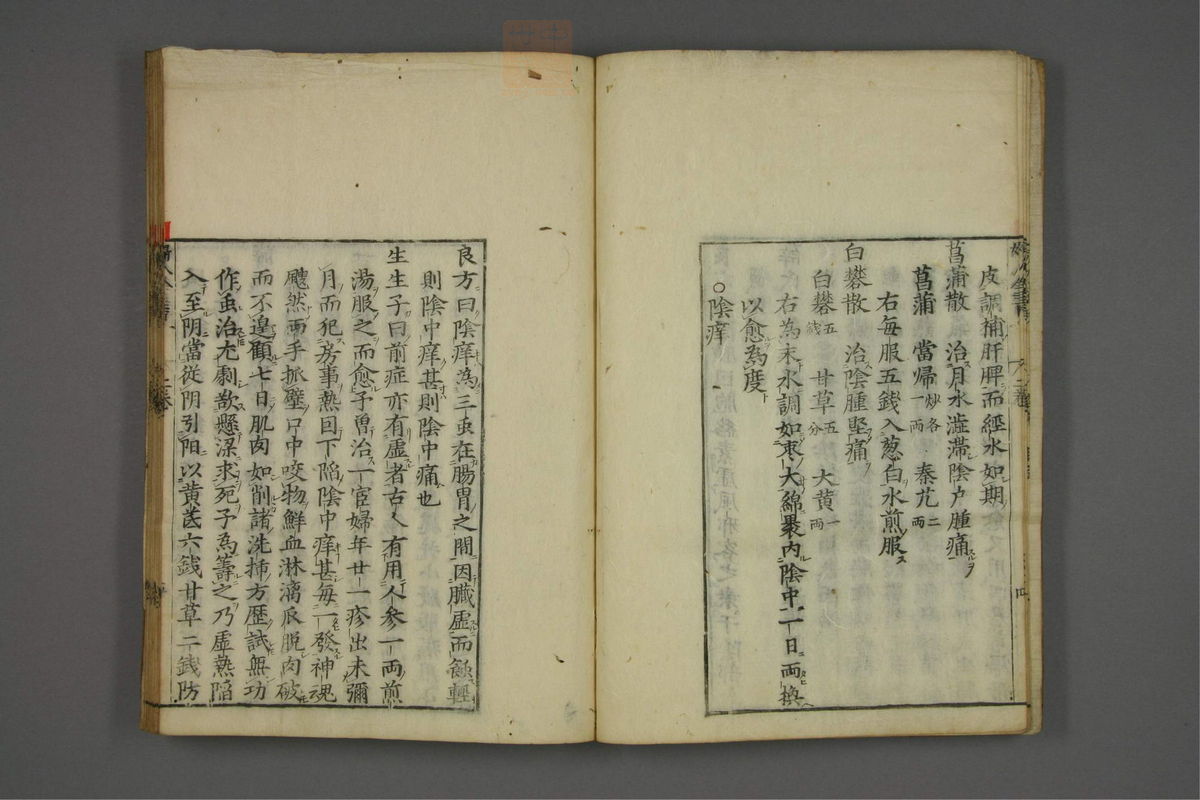 皮調補肝脾而經水如期
菖蒲散 治月水澁滯陰户腫痛
菖蒲 當帰炒各一兩 秦艽二兩
右每服五錢入葱白水煎服
白礬散 治陰腫堅痛
白礬五錢 甘草五分 大黃一兩
右為末水調如棗大綿裹內陰中一日兩換
以愈為度
○陰痒
良方曰陰痒為三虫在腸胃之間因臟虛而蝕輕
則陰中痒甚則陰中痛也
生生子曰前症亦有虛者古人有用人參一兩煎
湯服之而愈予曽治一宦婦年廿一疹出未彌
月而犯房事熱回下陷陰中痒甚每一發神魂
飃然兩手抓壁口中咬物鮮血淋漓瓜脫肉破
而不遑顧七日肌肉如削諸洗揷方歷試無功
作虫治尤劇欲懸梁求死予為籌之乃虛熱陷
入至阴當從阴引阳以黄芪六錢甘草二錢防